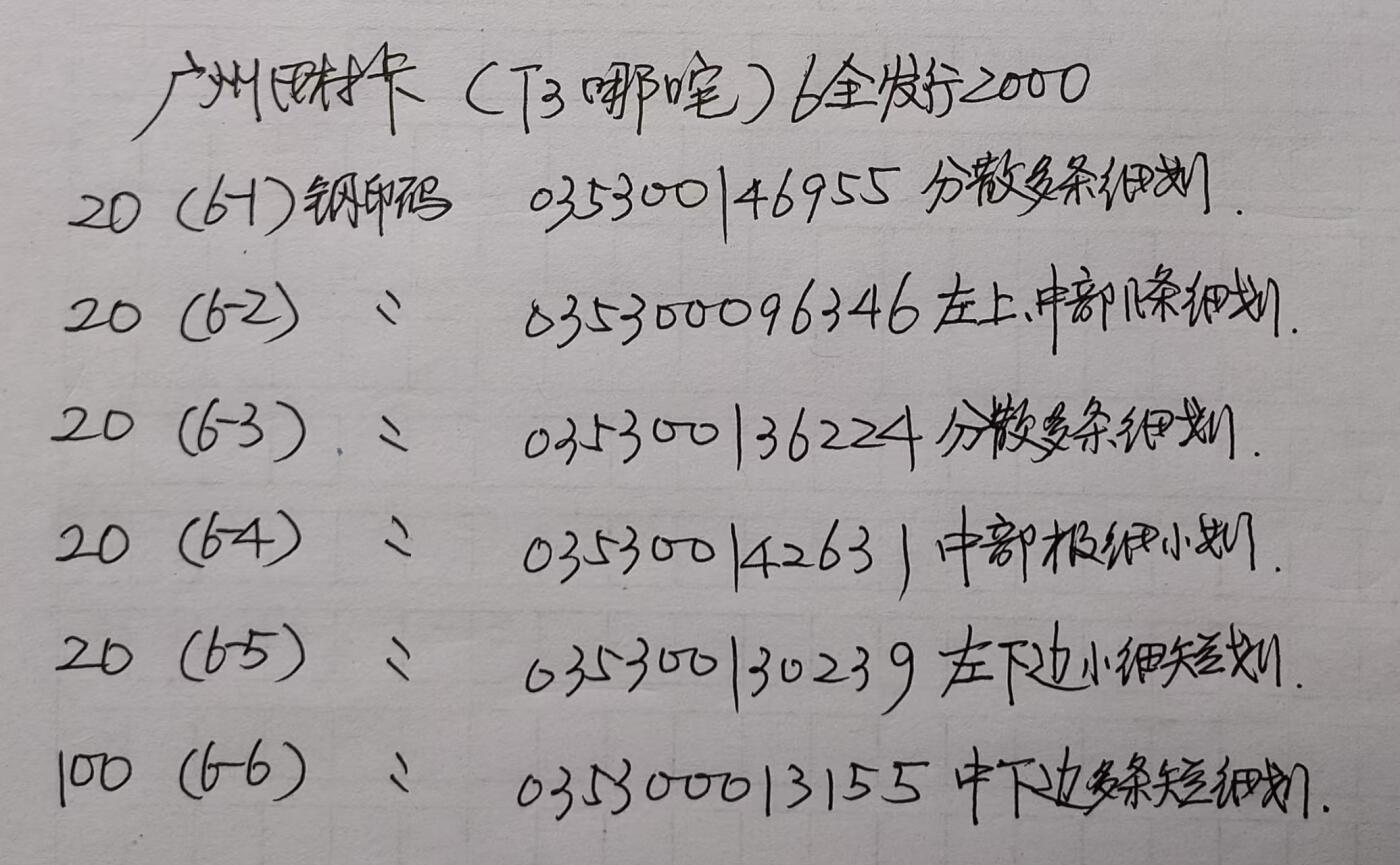 广州田村卡（T3哪咤）6全发行2000
20 (6-1) 钢印码 035300146955 分散多条细划.
20 (6-2) 〃 035300096346 左上、中部几条细划.
20 (6-3) 〃 035300136224 分散多条细划.
20 (6-4) 〃 035300142631 中部极细小划.
20 (6-5) 〃 035300130239 左下边小细短划.
100 (6-6) 〃 035300013155 中下边多条短细划.